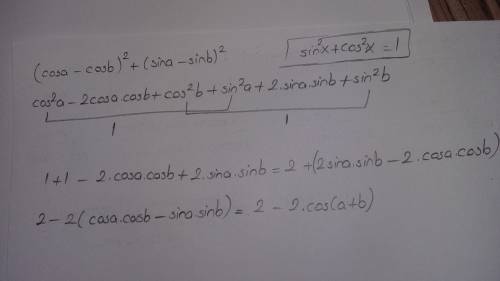 (cosa - cosb)² + (sina - sinb)²
sin²x + cos²x = 1
cos²a - 2cosa.cosb + cos²b + sin²a + 2.sina.sinb + sin²b
1 1
1+1 - 2.cosa.cosb + 2.sina.sinb = 2 + (2sina.sinb - 2.cosa.cosb)
2 - 2(cosa.cosb - sina.sinb) = 2 - 2.cos(a+b)